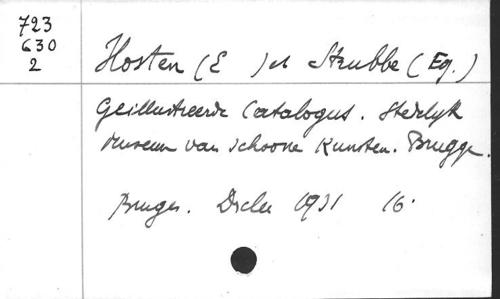 723
630
2
Hosten (E ) et Strubbe (Eg.)
Geillustreerde Catalogus. Stedelyk
Museum van schoone Kunsten. Brugge.
Bruges. Desclee 1931 16.